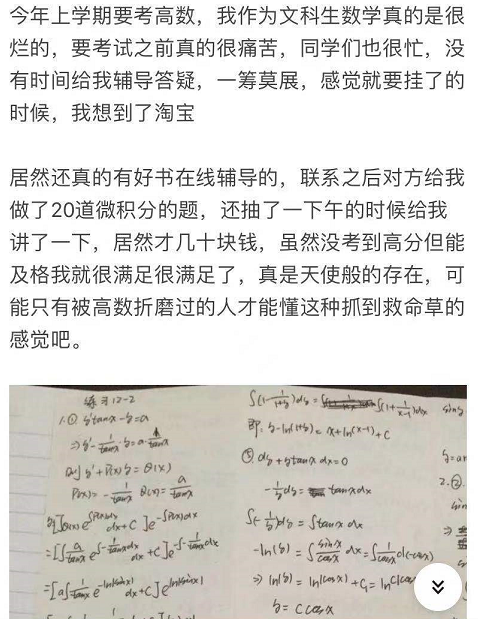 今年上学期要考高数，我作为文科生数学真的是很
烂的，要考试之前真的很痛苦，同学们也很忙，没
有时间给我辅导答疑，一筹莫展，感觉就要挂了的
时候，我想到了淘宝
居然还真的有好书在线辅导的，联系之后对方给我
做了20道微积分的题，还抽了一下午的时候给我
讲了一下，居然才几十块钱，虽然没考到高分但能
及格我就很满足很满足了，真是天使般的存在，可
能只有被高数折磨过的人才能懂这种抓到救命草的
感觉吧。
练习12-2
1.① y'tanx-y=a
⇒y'-1/tanx·y=a·1/tanx
y'+P(x)y=Q(x)
P(x)=-1/tanx Q(x)=a/tanx
∫(1-1/(1+y))dy=∫(1+1/(x-1))dx
即: y-ln(1+y)=x+ln(x-1)+C
dy+ytanx dx=0
-1/y dy=tanxdx
∫(-1/y)dy=∫tanxdx
-ln(y)=∫sinx/cosx dx=∫1/cosx d(-cosx)
⇒ln(y)=ln(cosx)+C₁=
y=Ccosx